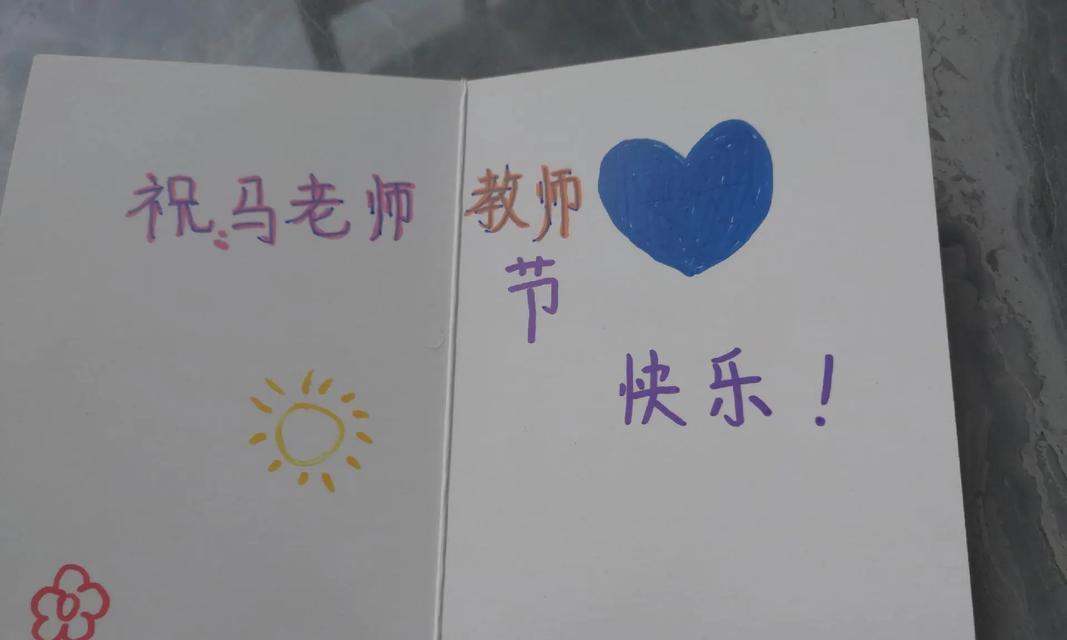 祝马老师教师
节
快乐!